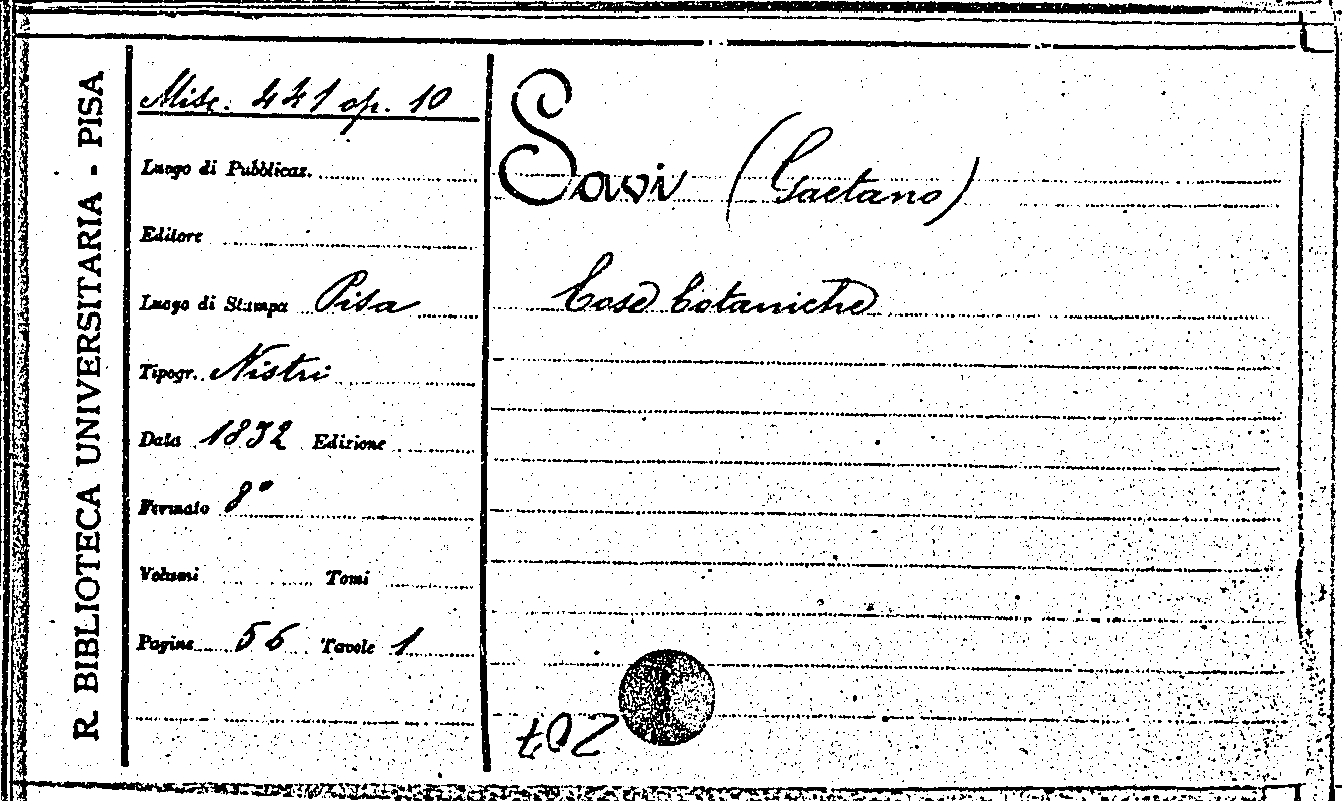 R. BIBLIOTECA UNIVERSITARIA - PISA
Misc. 441 op. 10
Luogo di Pubblicaz.
Editore
Luogo di Stampa Pisa
Tipogr. Nistri
Data 1832 Edizione
Formato 8°
Volumi Tomi
Pagine 56 Tavole 1
Savi (Gaetano)
Cose botaniche
207